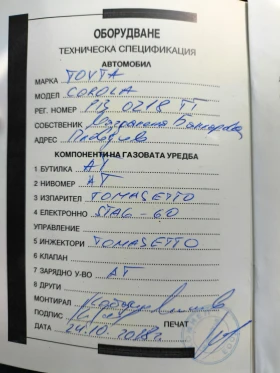 ОБОРУДВАНЕ
ТЕХНИЧЕСКА СПЕЦИФИКАЦИЯ
АВТОМОБИЛ
МАРКА TOYTA
МОДЕЛ COROLA
РЕГ. НОМЕР 0218
СОБСТВЕНИК
АДРЕС Пловдив
КОМПОНЕНТИ НА ГАЗОВАТА УРЕДБА
1 БУТИЛКА
2 НИВОМЕР AT
3 ИЗПАРИТЕЛ TOMASETTO
4 ЕЛЕКТРОННО STAG-60
УПРАВЛЕНИЕ
5 ИНЖЕКТОРИ TOMASETTO
6 КЛАПАН
7 ЗАРЯДНО У-ВО AT
8 ДРУГИ
МОНТИРАЛ
ПОДПИС ПЕЧАТ
ДАТА 24.10.2018г